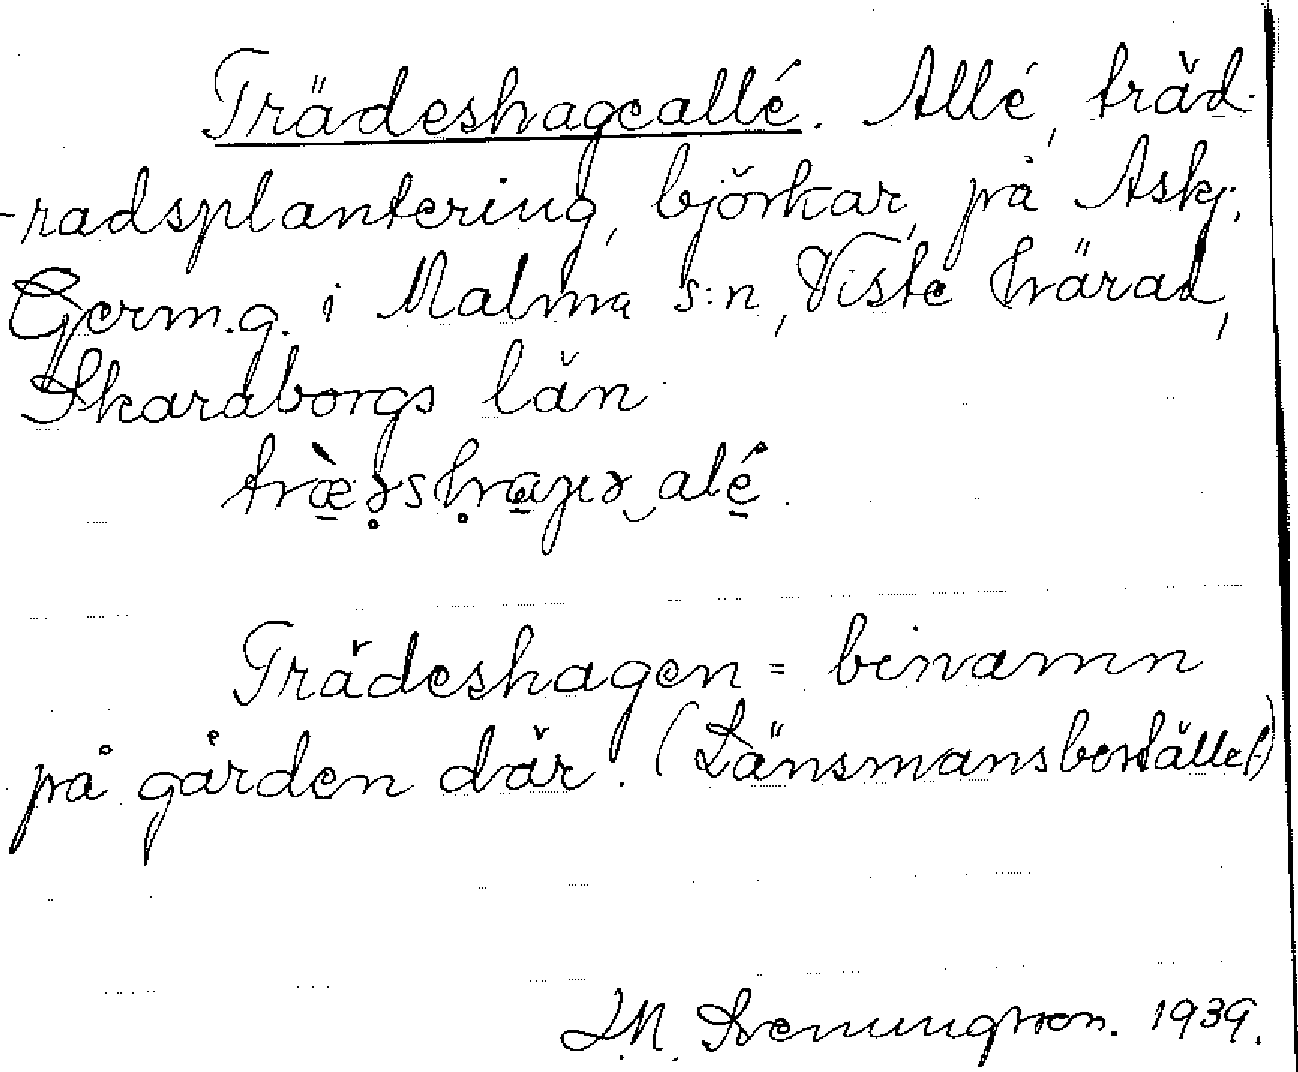 Trädeshageallé. Allé, träd-
-radsplantering, björkar, på Askj.
Germ.g. i Malma s:n, Viste härad,
Skaraborgs län

Trädeshagen = binamn
på gården där. (Länsmansbostället)
J.N. Svenungsson. 1939.